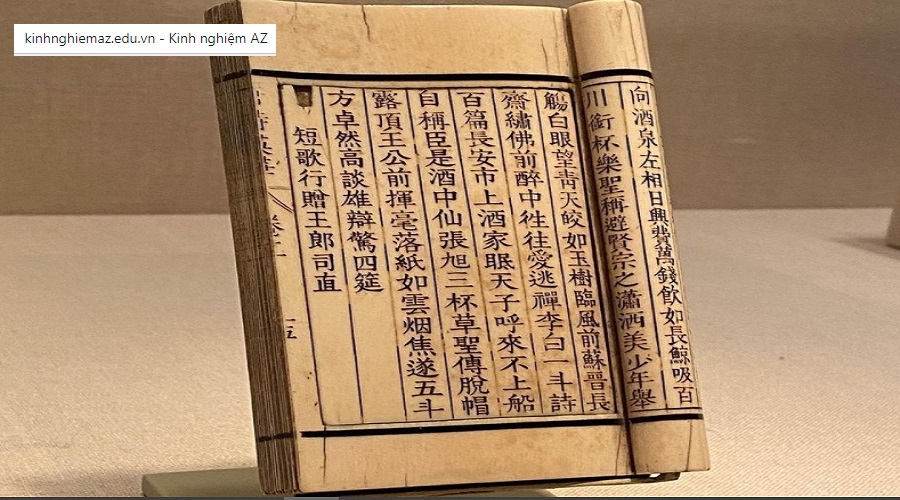 kinhnghiemaz.edu.vn - Kinh nghiệm AZ
向酒泉左相日興費萬錢飲如長鯨吸百
川銜杯樂聖稱避賢宗之瀟洒美少年舉
觴白眼望青天皎如玉樹臨風前蘇晉長
齋繡佛前醉中往往愛逃禪李白一斗詩
百篇長安市上酒家眠天子呼來不上船
自稱臣是酒中仙張旭三杯草聖傳脫帽
露頂王公前揮毫落紙如雲烟焦遂五斗
方卓然高談雄辯驚四筵
短歌行贈王郎司直